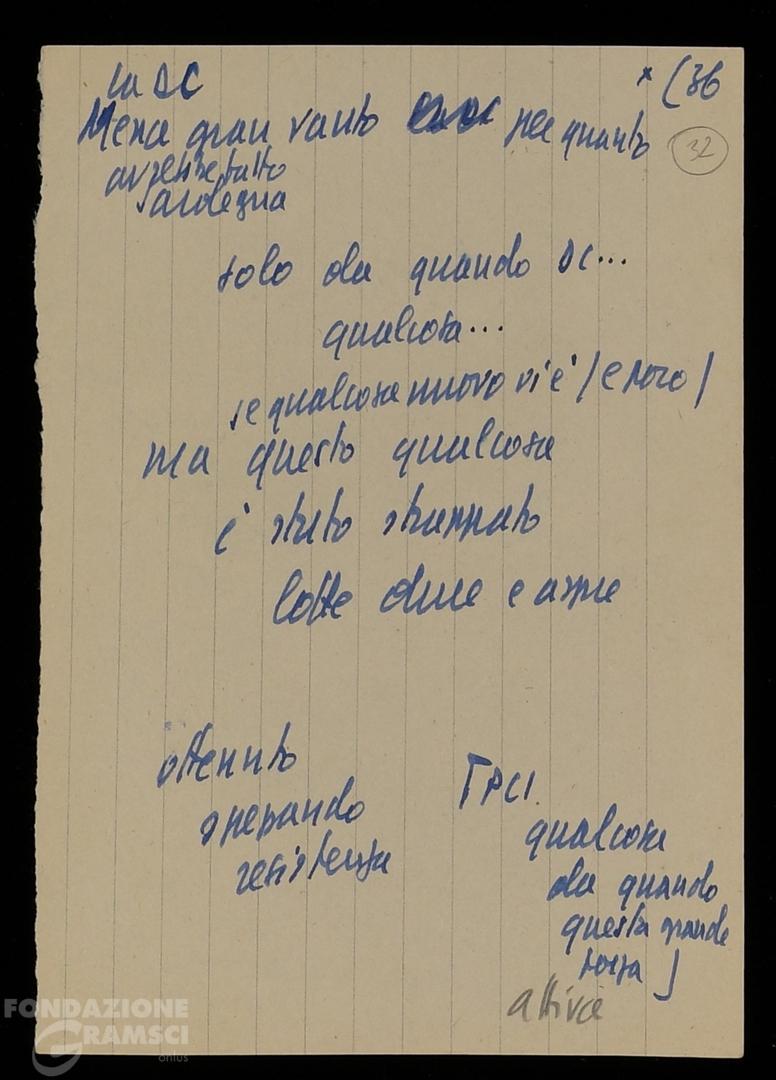 la DC
* (36
Mena gran vanto per quanto
32
avrebbe fatto
Sardegna
solo da quando DC...
qualcosa...
se qualcosa nuovo vi è / e poco /
ma questo qualcosa
è stato strappato
lotte dure e aspre
ottenuto
spezzando
resistenza
[PCI.
qualcosa
da quando
questa grande
forza]
attiva
FONDAZIONE
GRAMSCI
onlus